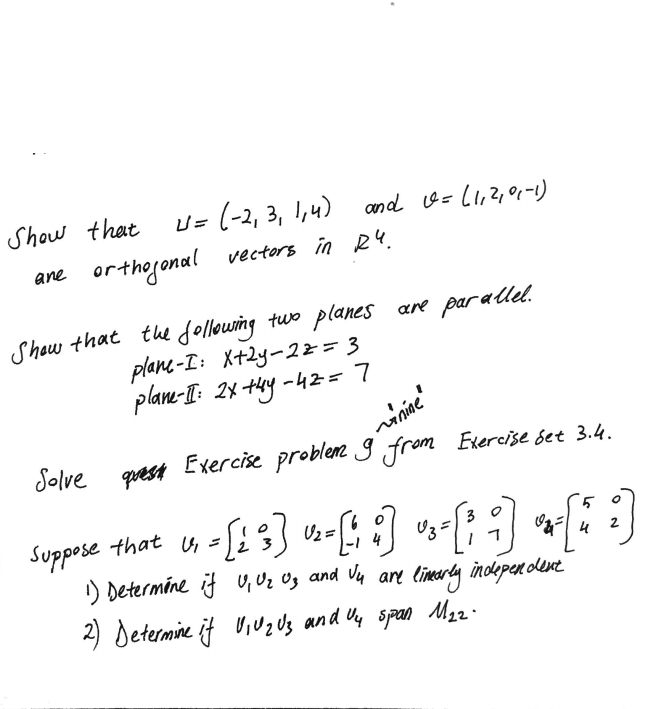 Show that U = (-2, 3, 1, 4) and v = (1, 2, 0, -1)
are orthogonal vectors in R4.
Show that the following two planes are parallel.
plane-I: x+2y-2z = 3
plane-II: 2x+4y-4z = 7
"nine"
Solve Exercise problem 9 from Exercise Set 3.4.
Suppose that v1 = [1 0; 2 3] v2 = [6 0; -1 4] v3 = [3 0; 1 7] v4 = [5 0; 4 2]
1) Determine if v1 v2 v3 and v4 are linearly independent
2) Determine if v1 v2 v3 and v4 span M22.